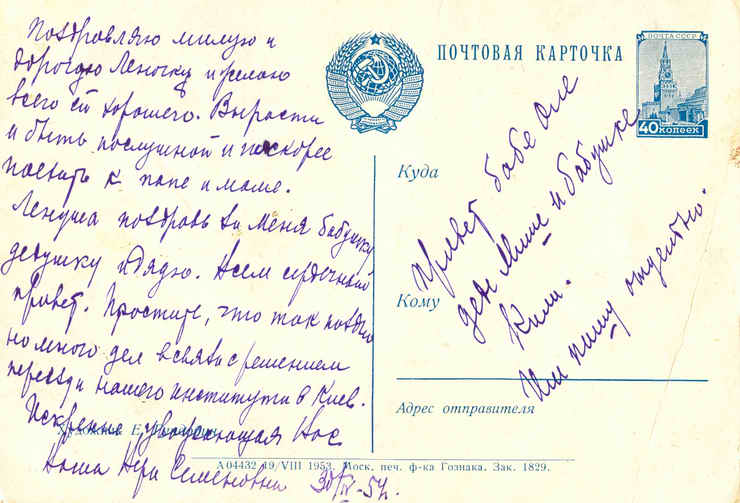 Поздравляю милую и
дорогую Леночку и желаю
всего ей хорошего. Вырасти
и быть послушной и поскорее
поехать к папе и маме.
Ленуша поздравь за меня бабушку
дедушку и дядю. Всем сердечный
привет. Простите, что так поздно
но много дел в связи с решением
переезда нашего института в Киев.
Искренне уважающая Вас
Ваша Семеновна 30/IV-54.
ПОЧТОВАЯ КАРТОЧКА
ПОЧТА СССР
40 КОПЕЕК
Куда
Кому
Адрес отправителя
Привет бабе Оле
деде Мише и бабушке
Киле.
Им пишу отдельно.
Художник Е.
А 04432 19/VIII 1953. Моск. печ. ф-ка Гознака. Зак. 1829.